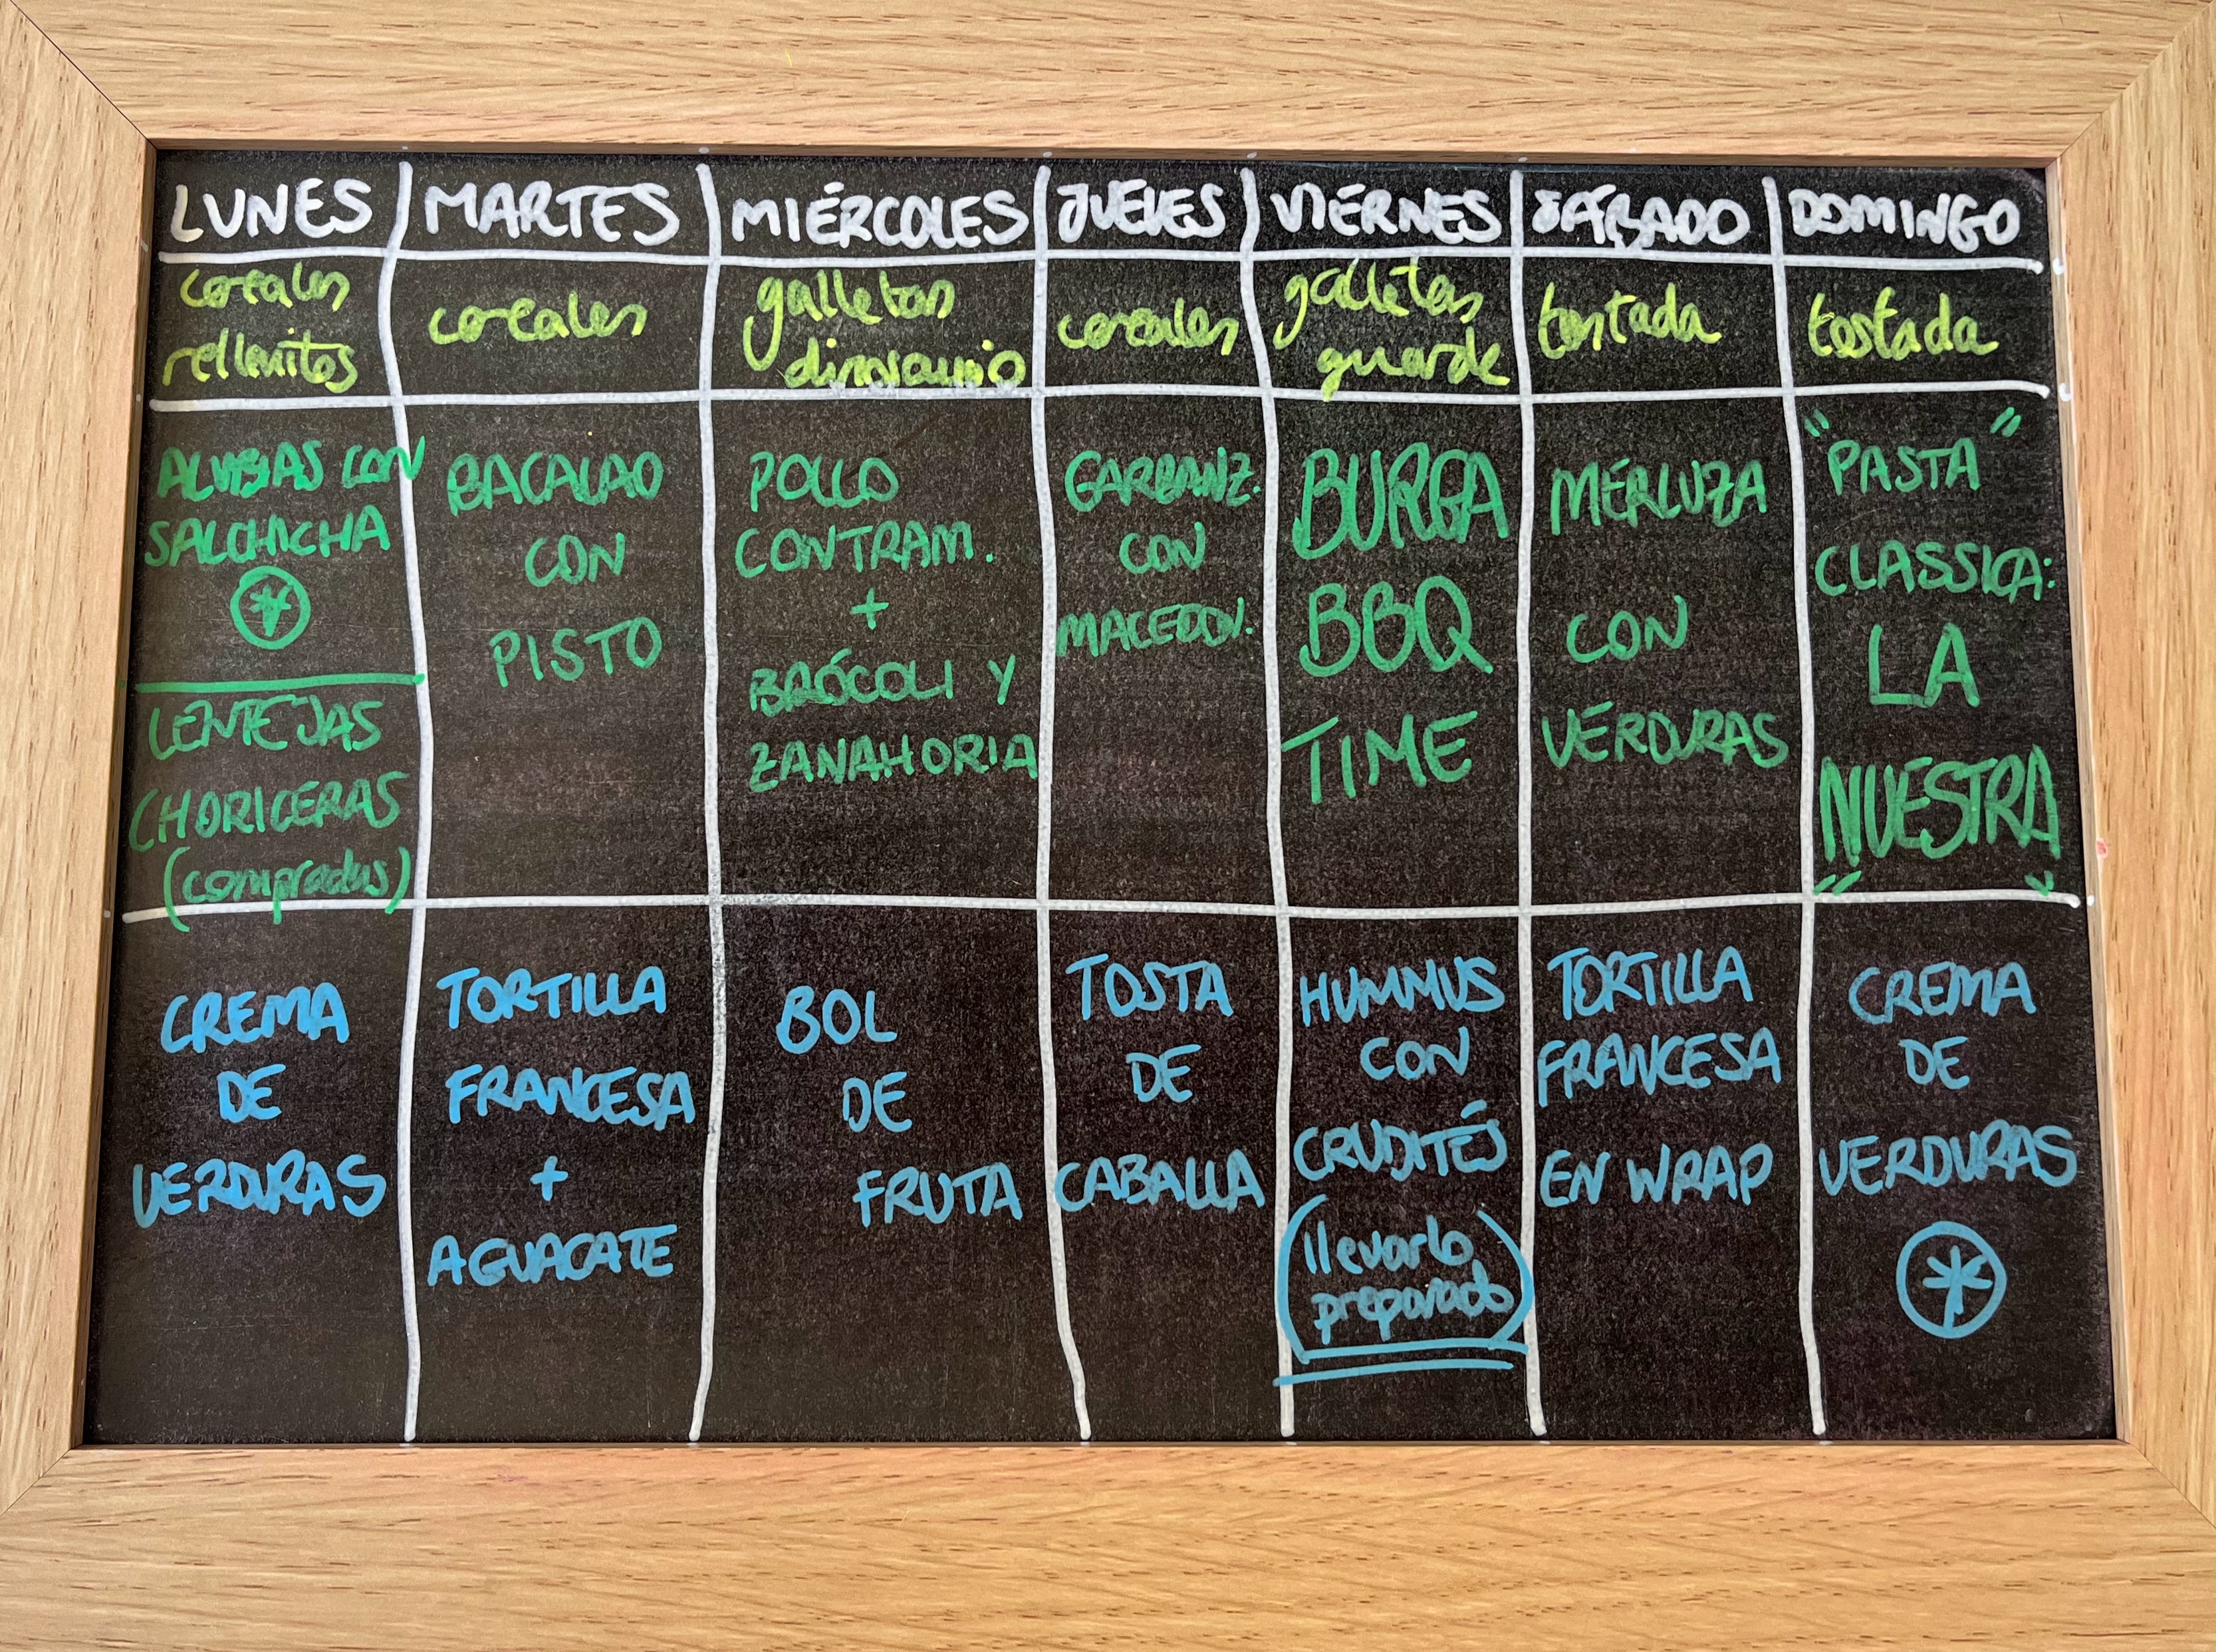 LUNES
MARTES
MIÉRCOLES
JUEVES
VIÉRNES
SÁBADO
DOMINGO
cereales
rellenitos
cereales
galletas
dinosaurio
cereales
galletas
guarde
tostada
tostada
ALUBIAS CON
SALCHICHA
*
LENTEJAS
CHORICERAS
(compradas)
BACALAO
CON
PISTO
POLLO
CONTRAM.
+
BRÓCOLI Y
ZANAHORIA
GARBANZ.
CON
MACEDON.
BURGA
BBQ
TIME
MERLUZA
CON
VERDURAS
"PASTA"
CLASSICA:
LA
NUESTRA
CREMA
DE
VERDURAS
TORTILLA
FRANCESA
+
AGUACATE
BOL
DE
FRUTA
TOSTA
DE
CABALLA
HUMMUS
CON
CRUDITÉS
(llevarlo
preparado)
TORTILLA
FRANCESA
EN WRAP
CREMA
DE
VERDURAS
*